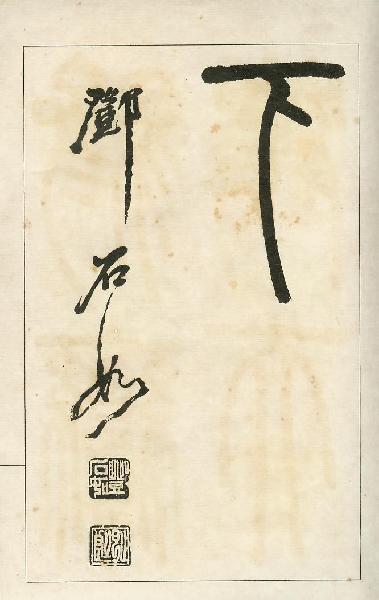 下
鄧石如